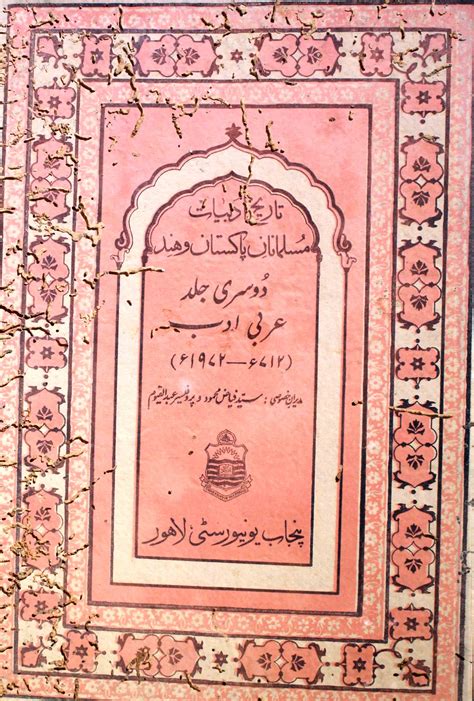 تاریخ ادبیات
مسلمانان پاکستان و ہند
دوسری جلد
عربی ادب
(۶۷۱۲ — ۶۱۹۷۲)
مدیران خصوصی : سید فیاض محمود و پروفیسر عبدالقیوم
پنجاب یونیورسٹی لاہور